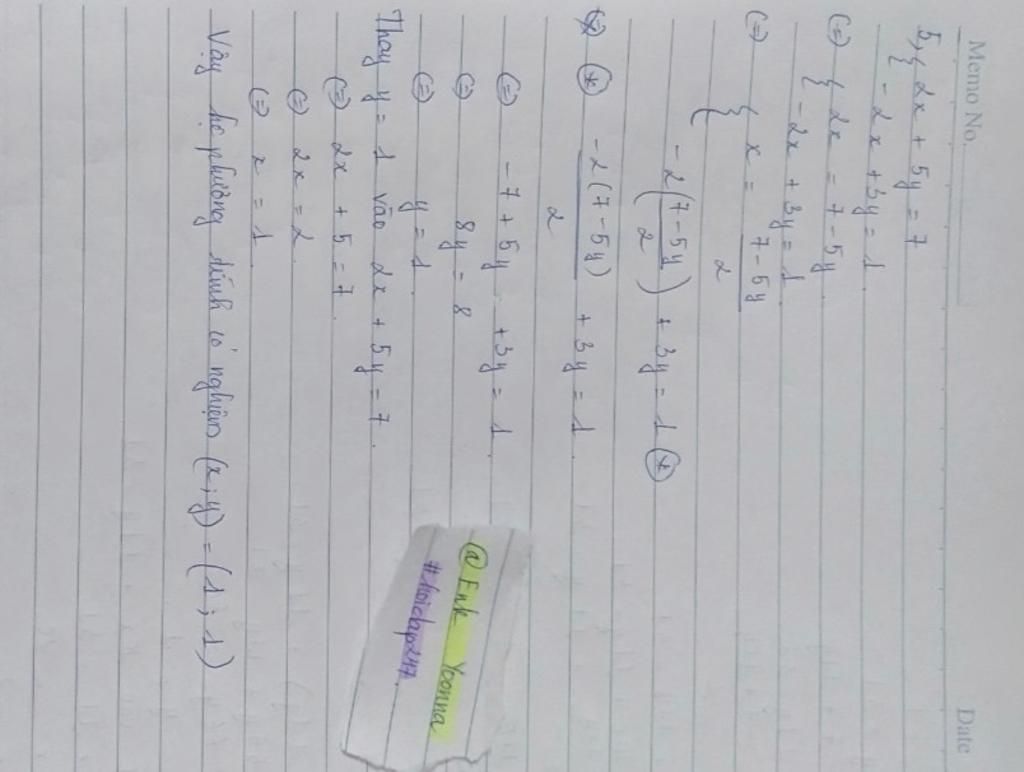 Memo No.
Date
5, { 2x + 5y = 7
- 2x + 3y = 1
(=) { 2x = 7 - 5y
- 2x + 3y = 1
(=) { x = \frac{7 - 5y}{2}
-2(\frac{7 - 5y}{2}) + 3y = 1 (*)
(*) \frac{-2(7 - 5y)}{2} + 3y = 1
(=) -7 + 5y + 3y = 1
(=) 8y = 8
(=) y = 1
Thay y = 1 vào 2x + 5y = 7.
(=) 2x + 5 = 7
(=) 2x = 2
(=) x = 1
Vậy hệ phương trình có nghiệm (x; y) = (1; 1)
@ Enk Yoonna
#hoidap247